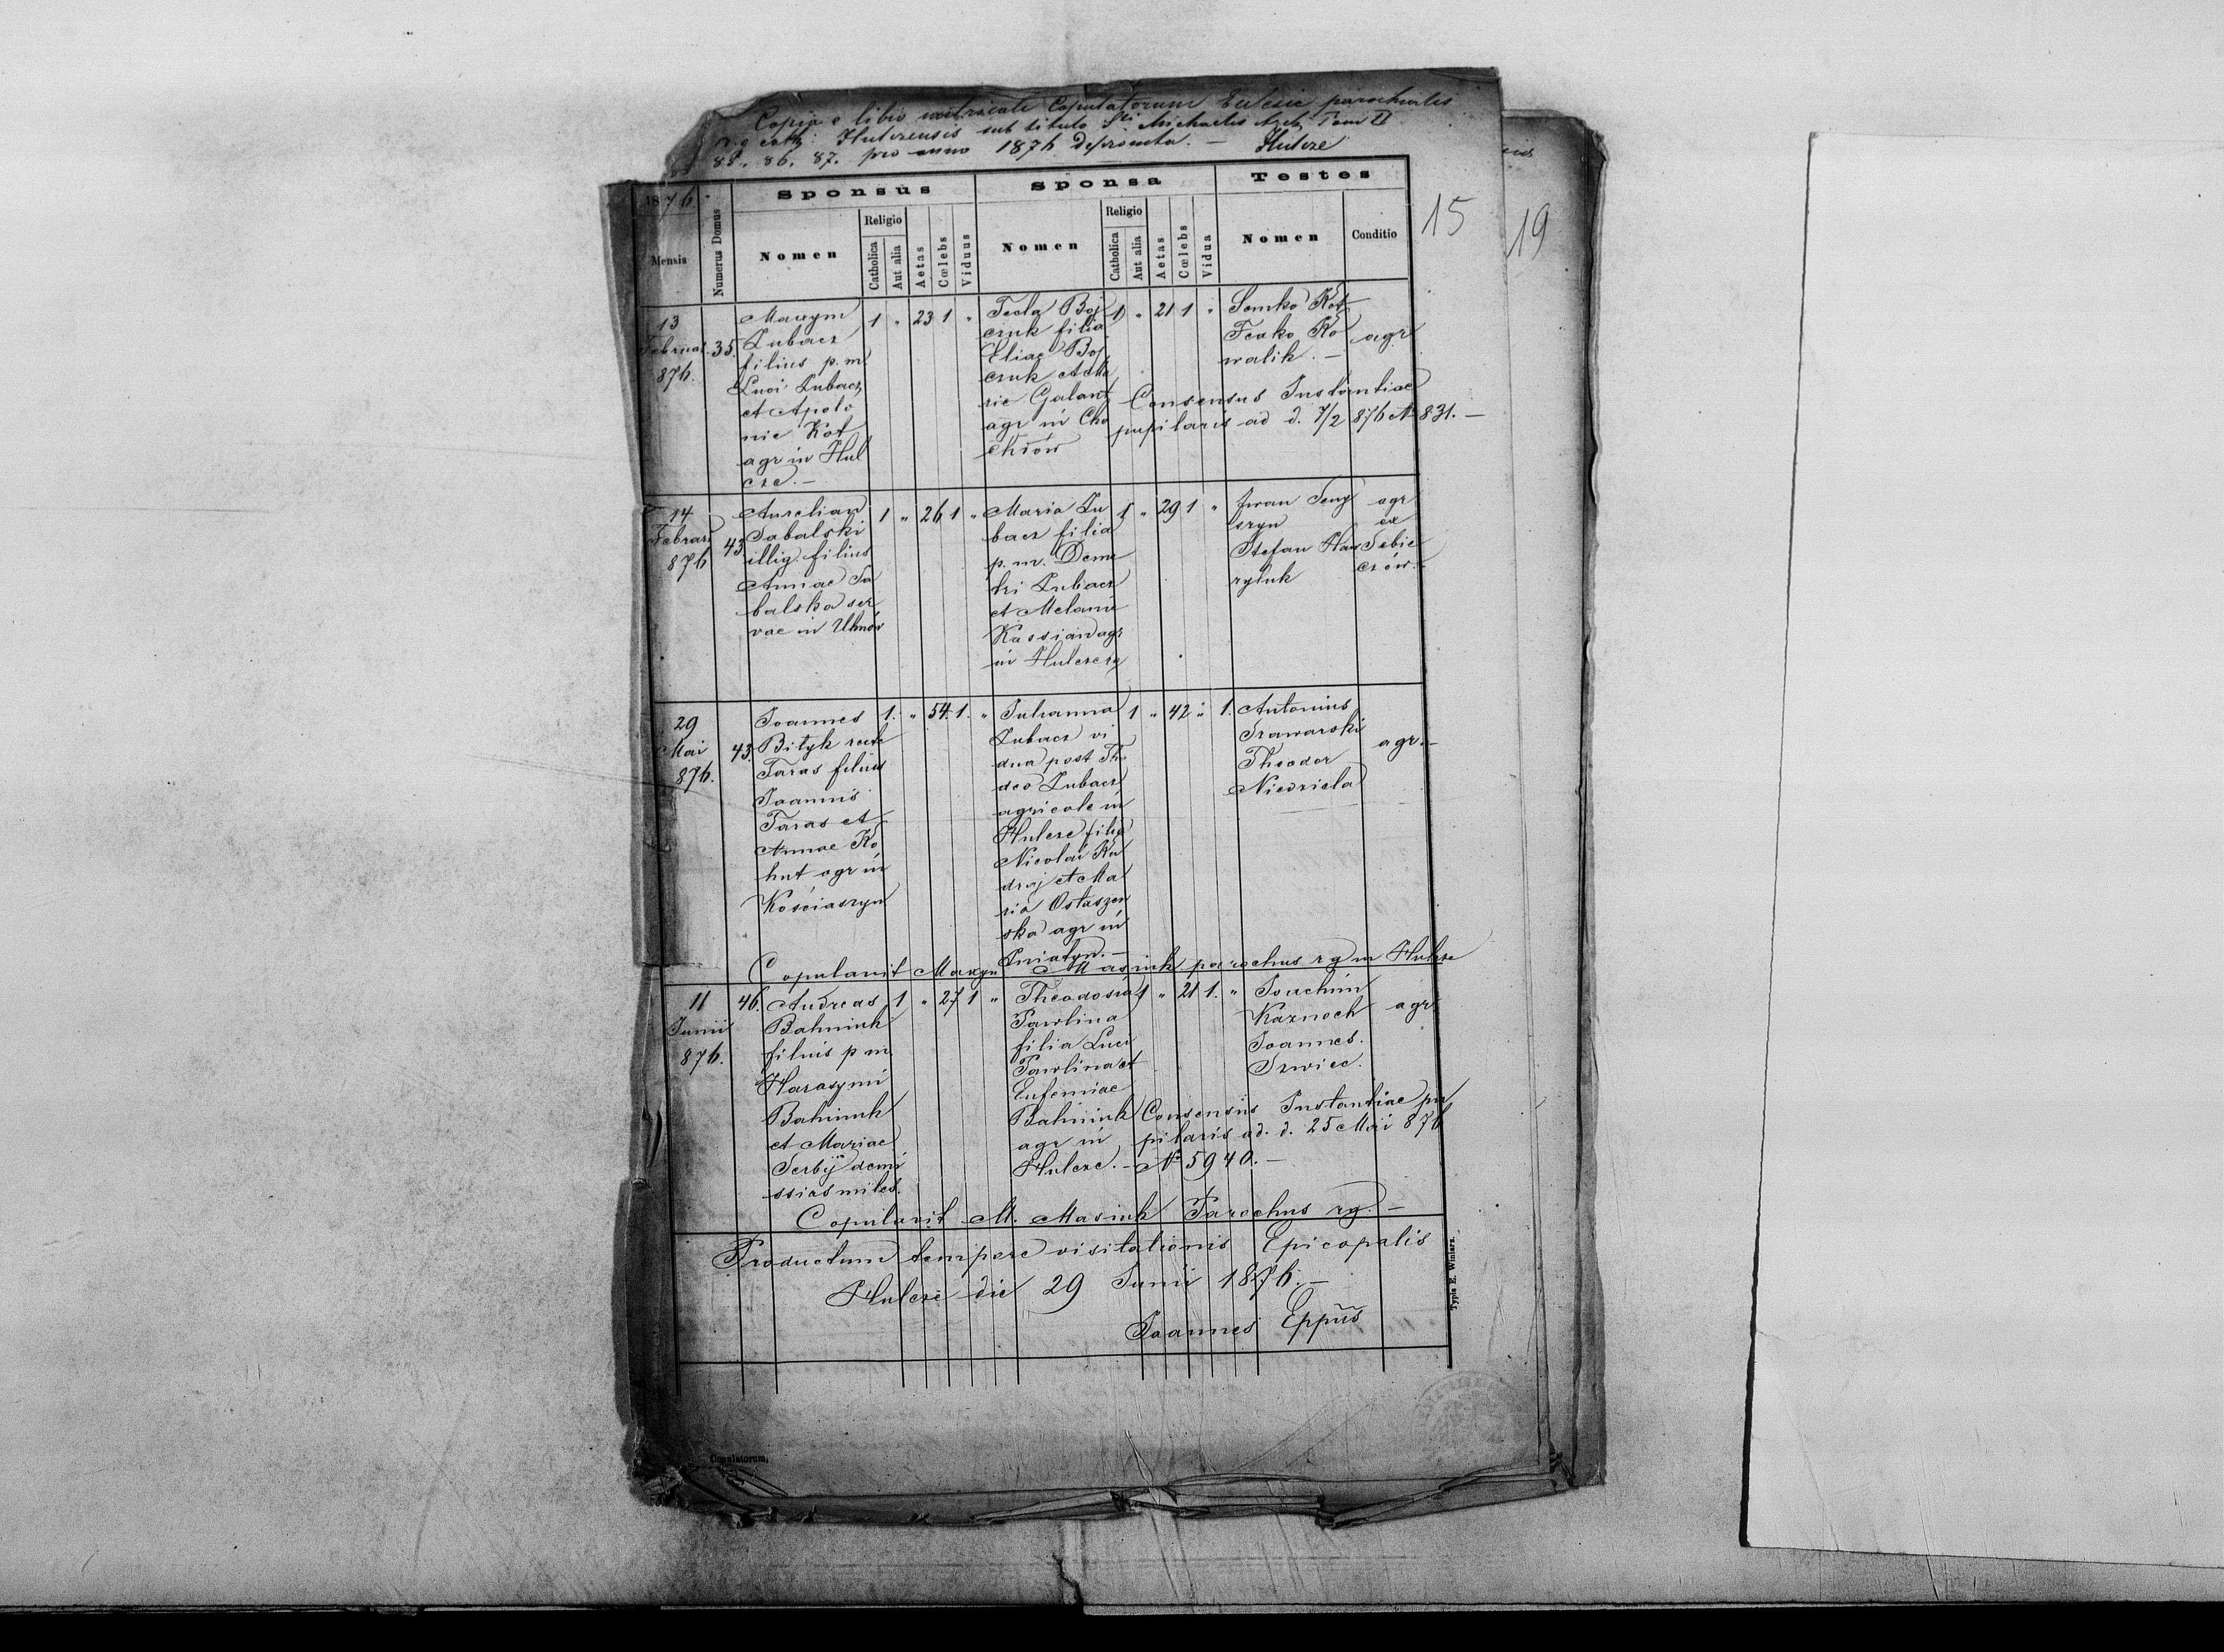 Copia e libro matricali Copulatorum Eclesie parochialis
r. g. cath: Hulczensis sub titulo Sti Michaelis Arch. Tom II
85. 86. 87. pro anno 1876 depromta. — Hulcze
15
19
1876
Mensis
Numerus Domus
Sponsus
Nomen
Religio
Catholica
Aut alia
Aetas
Cœlebs
Viduus
Sponsa
Nomen
Religio
Catholica
Aut alia
Aetas
Cœlebs
Vidua
Testes
Nomen
Conditio
13
Februar
876.
35.
Maxym
Łubacz
filius p. m.
Luci Łubacz
et Apolo
nie Kot
agr in Hul
cze. —
1 „ 23 1 „
Tecla Boj
czuk filia
Eliae Boj
czuk et Ma
rie Galant
agr in Cho
chłów
1 „ 21 1 „
Semko Kot
Fenko Ko
walik. —
agr
Consensus Instantiae
pupilaris ad d. 7/2 876 N 831. —
14
Februar
876
43
Aurelian
Sabalski
illig. filius
Annae Sa
balska ser
vae in Uhnów
1 „ 26 1 „
Maria Łu
bacz filia
p. m. Deme
tri Łubacz
et Melanie
Kassian agr
in Hulcze
1 „ 29 1 „
Iwan Seny
szyn
Stefan Haw
ryluk
agr
ex
Sebie
czów. —
29
Mai
876.
43.
Joannes
Bityk recte
Taras filius
Joannis
Taras et
Annae Ko
hut agr in
Kościaszyn
1. „ 54. 1. „
Julianna
Łubacz vi
dua post Th
deo Łubacz
agricole in
Hulcze filia
Nicolai Ku
draj et Ma
ria Ostaszew
ska agr in
Żniatyn. —
1 „ 42 „ 1.
Antonius
Srawarski
Theodor
Niedzicla
agr. —
Copulavit Maxym Masiuk parochus rg in Hulcze
11
Junii
876.
46.
Andreas
Bahniuk
filius p m.
Harasymi
Bahniuk
et Mariae
Serbij demi
ssias miles.
1 „ 27 1 „
Theodosia
Pawlina
filia Luci
Pawlina et
Eufemiae
Bahniuk
agr in
Hulcze. —
1 „ 21 1. „
Jouchim
Kaznoch
Joannes.
Szwiec.
agr.
Consensus Instantiae pu
pilaris ad. d. 25 Mai 876
No 5940. —
Copulavit M. Masiuk Parochus rg. —
Productum tempore visitationis Epicopalis
Hulcze die 29 Junii 1876. —
Joannes Eppus
Typis E. Winiarz.
Copulatorum,